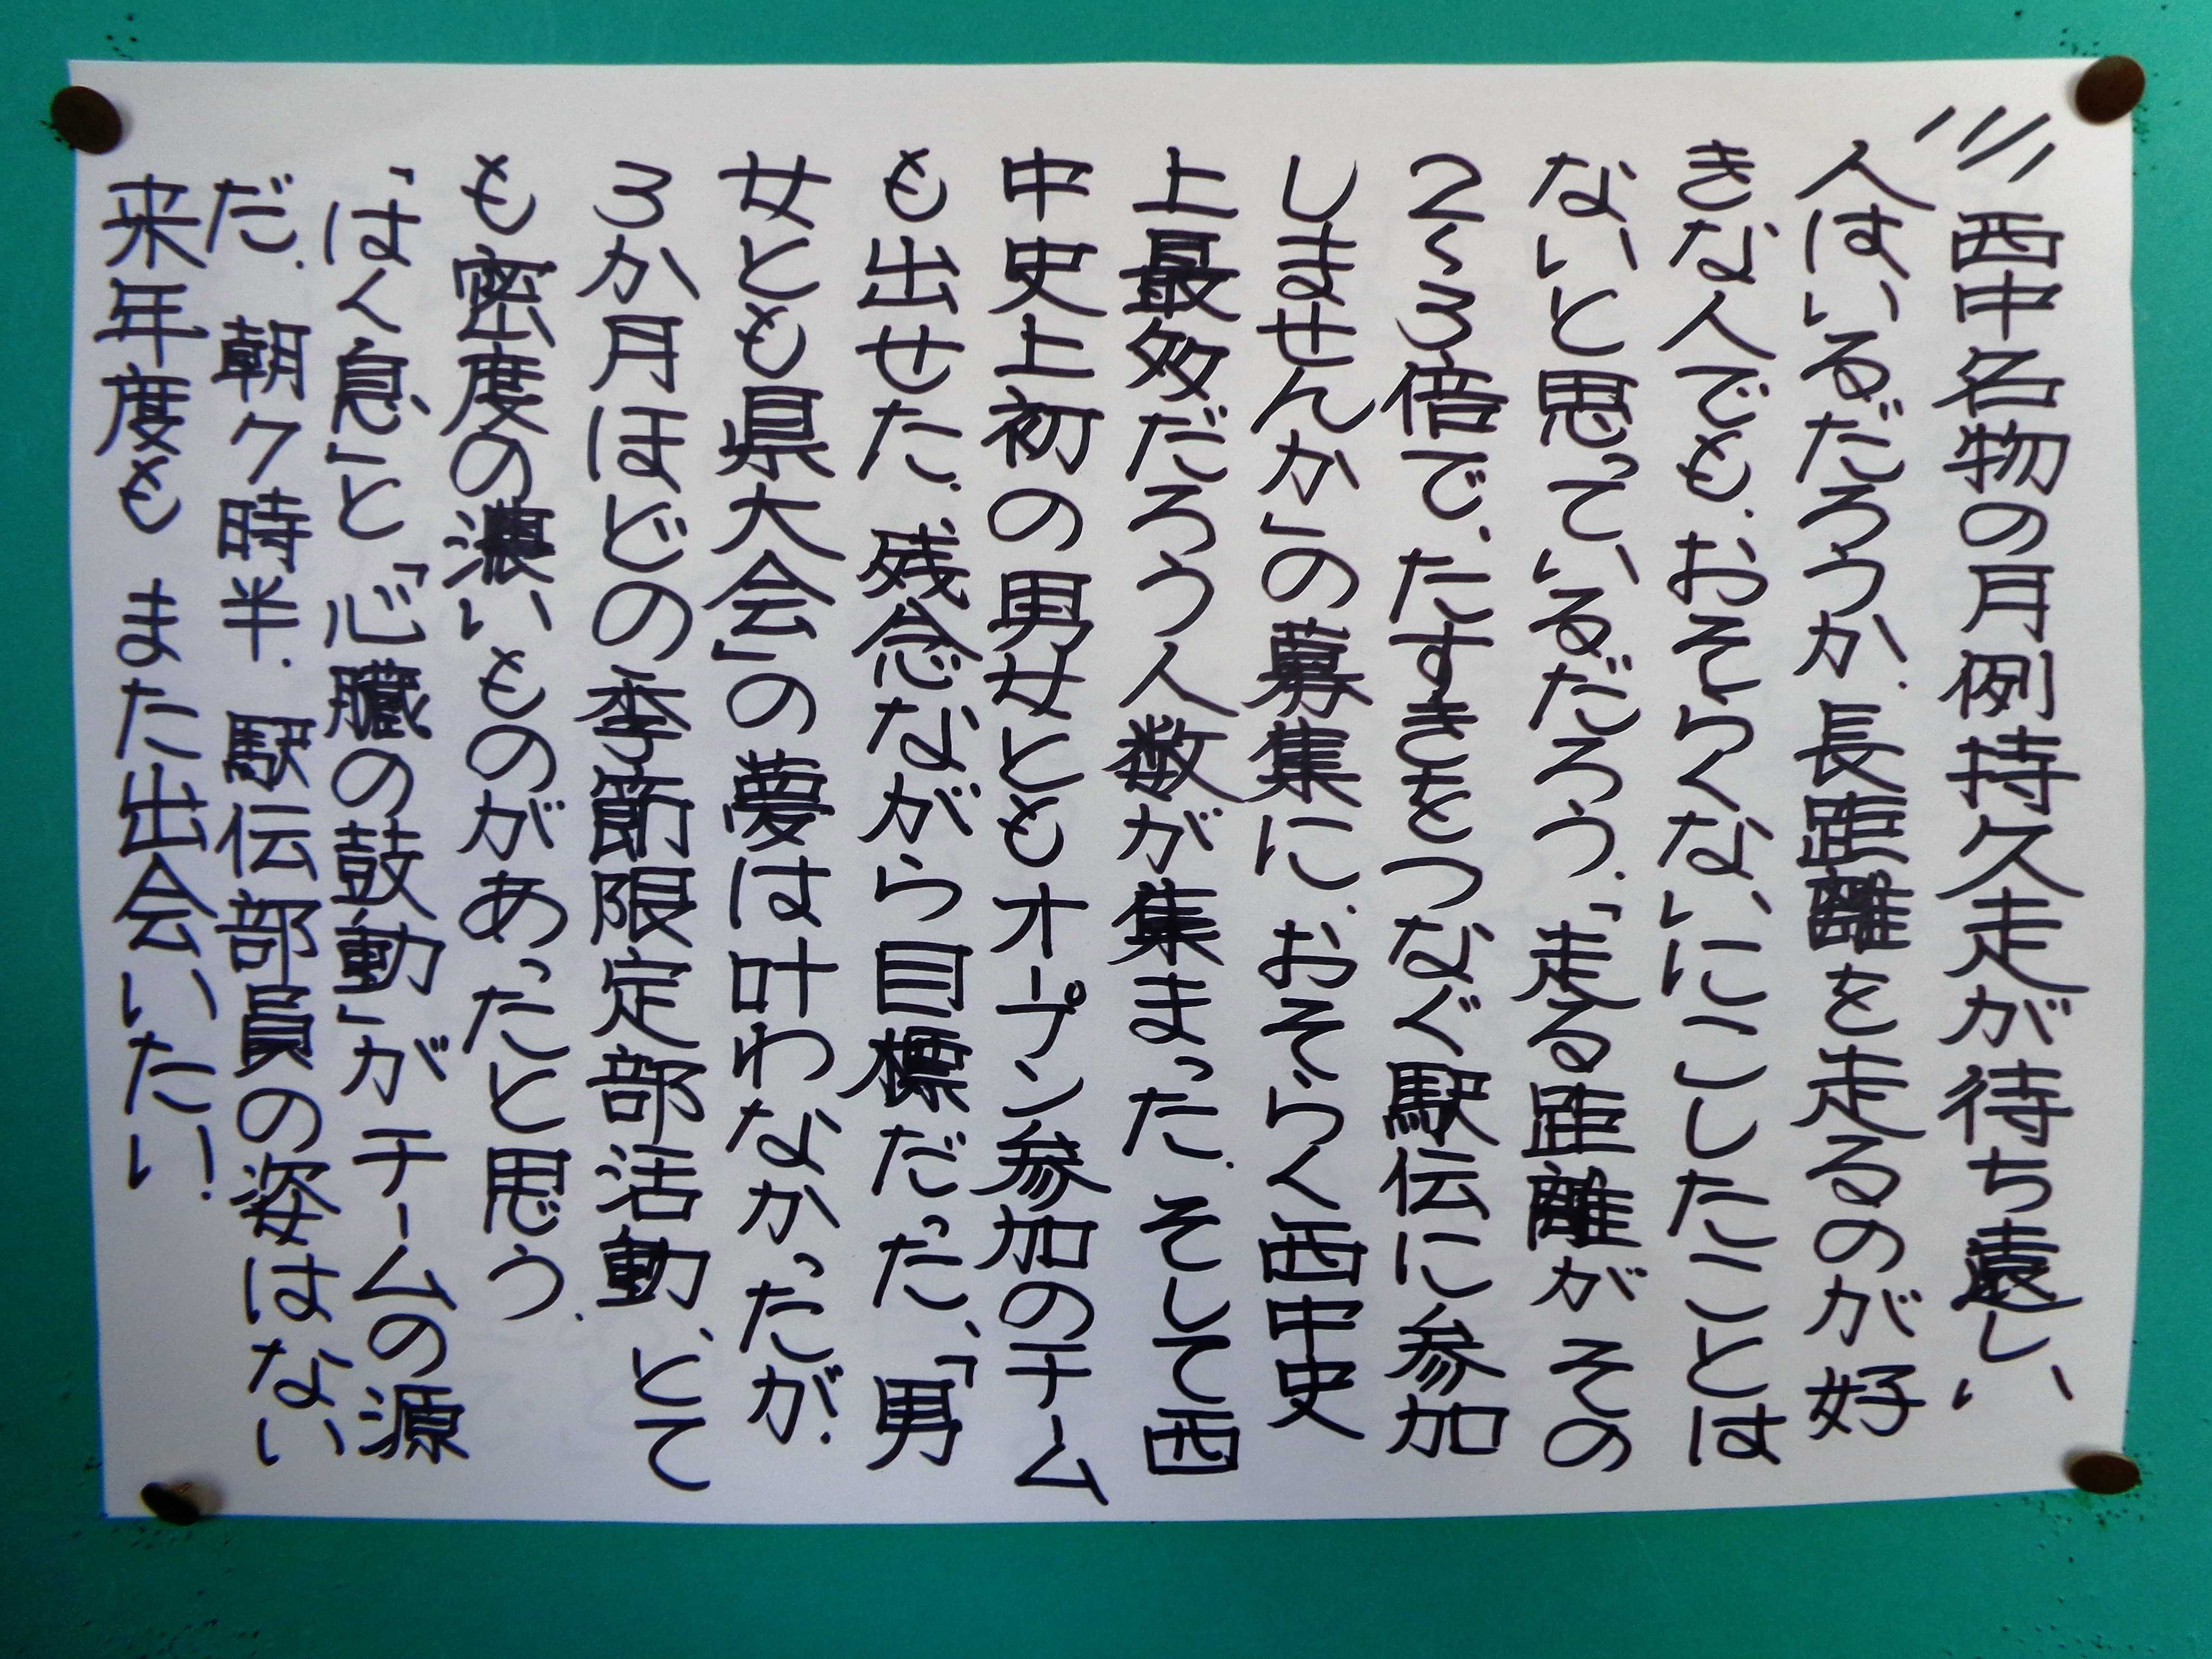 11/11 西中名物の月例持久走が待ち遠しい
人はいるだろうか.長距離を走るのが好
きな人でも.おそらくないにこしたことは
ないと思っているだろう.「走る距離が その
2〜3倍で.たすきをつなぐ駅伝に参加
しませんか」の募集に.おそらく西中史
上最多だろう人数が集まった.そして西
中史上初の男女ともオープン参加のチーム
も出せた.残念ながら目標だった、「男
女とも県大会」の夢は叶わなかったが.
3か月ほどの季節限定部活動、とて
も密度の濃いものがあったと思う.
「はく息」と「心臓の鼓動」がチームの源
だ.朝7時半.駅伝部員の姿はない
来年度も また出会いたい!